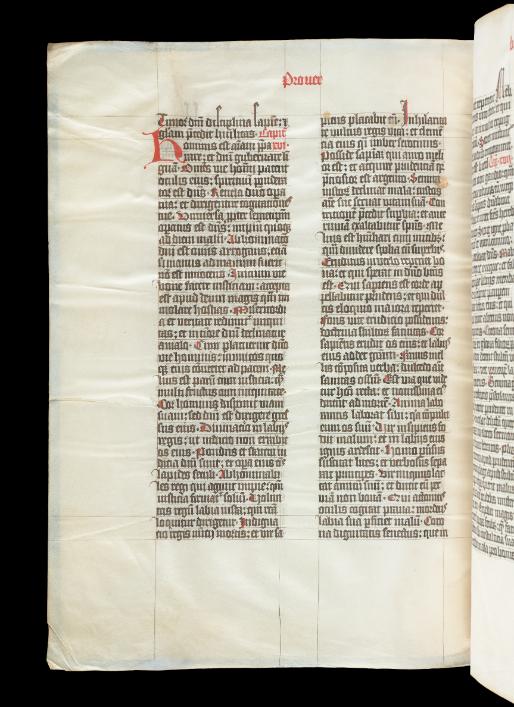 Prouer
Timor dñi disciplina sapiẽ: ⁊
glam pcedit huilitas. Capit̃
Hominis est aĩam ppa xvi
rare: et dñi gubernare li
guã. Oñes vie hoĩm patent
oculis eius: spirituũ pondera
tor est dñs. Reuela dño opa
tua: et dirigentur cogitatões
tue. Vniuersa ppter semetipm
opatus est dñs: impiũ quoq;
ad diem malũ. Abhominatio
dñi est omis arrogans: etiã
si manus ad manum fuerit
nõ est innocens. Iniciũ vie
bone facere iusticiam: accepta
est apud deum magis q̃ im
molare hostias. Misericordi
a et veritate redimit̃ iniqui
tas: et in timore dñi declinatur
a malo. Cum placuerint dño
vie hominis: inimicos quo
q; eius conuertet ad pacem. Me
lius est parũ cum iusticia: q̃
multi fructus cum iniquitate.
Cor hominis disponit viam
suam: sed dñi est dirigere gres
sus eius. Diuinatio in labijs
regis: in iudicio non errabit
os eius. Pondus et statera iu
dicia dñi sunt: et opa eius oẽs
lapides seculi. Abhominabi
les regi qui agunt impie: qm̃
iusticia firmat̃ soliũ. Volun
tas regũ labia iusta: qui recta
loquitur diligetur. Indigna
tio regis nũcij mortis: et vir sa
piens placabit eã. In hilarita
te vultus regis vita: et clemẽ
tia eius q̃i imber serotinus.
Posside sapiam quia auro meli
or est: et acquire prudenciã q̃
preciosior est argento. Semita
iustoꝝ declinat mala: custos
aĩe sue seruat viam suã. Con
tricõez pcedit supbia: et ante
ruinã exaltabitur spũs. Me
lius est humiliari cum mitib;:
q̃ diuidere spolia cũ supbis.
Eruditus in verbo repiet bo
na: et qui sperat in dño btũs
est. Qui sapiens est corde ap
pellabitur prudens: et qui dul
cis eloquio maiora repiet.
Fons vite eruditio possidentis:
doctrina stultoꝝ fatuitas. Cor
sapientis erudiet os eius: et labijs
eius addet grãm. Fauus mel
lis cõposita verba: dulcedo aĩe
sanitas ossiũ. Est via que vide
tur hoĩ recta: et nouissima eiꝰ
ducunt ad mortem. Anima labo
rantis laborat sibi: q̃a cõpulit
eum os suũ. Vir insipiens fo
dit malum: et in labijs eius
ignis ardescit. Homo puersꝰ
suscitat lites: et verbosus sepa
rat principes. Vir iniquus lac
tat amicũ suũ: et ducit eũ per
viã non bonã. Qui attonitis
oculis cogitat praua: mordẽs
labia sua pficiet malũ. Coro
na dignitatis senectus: que in